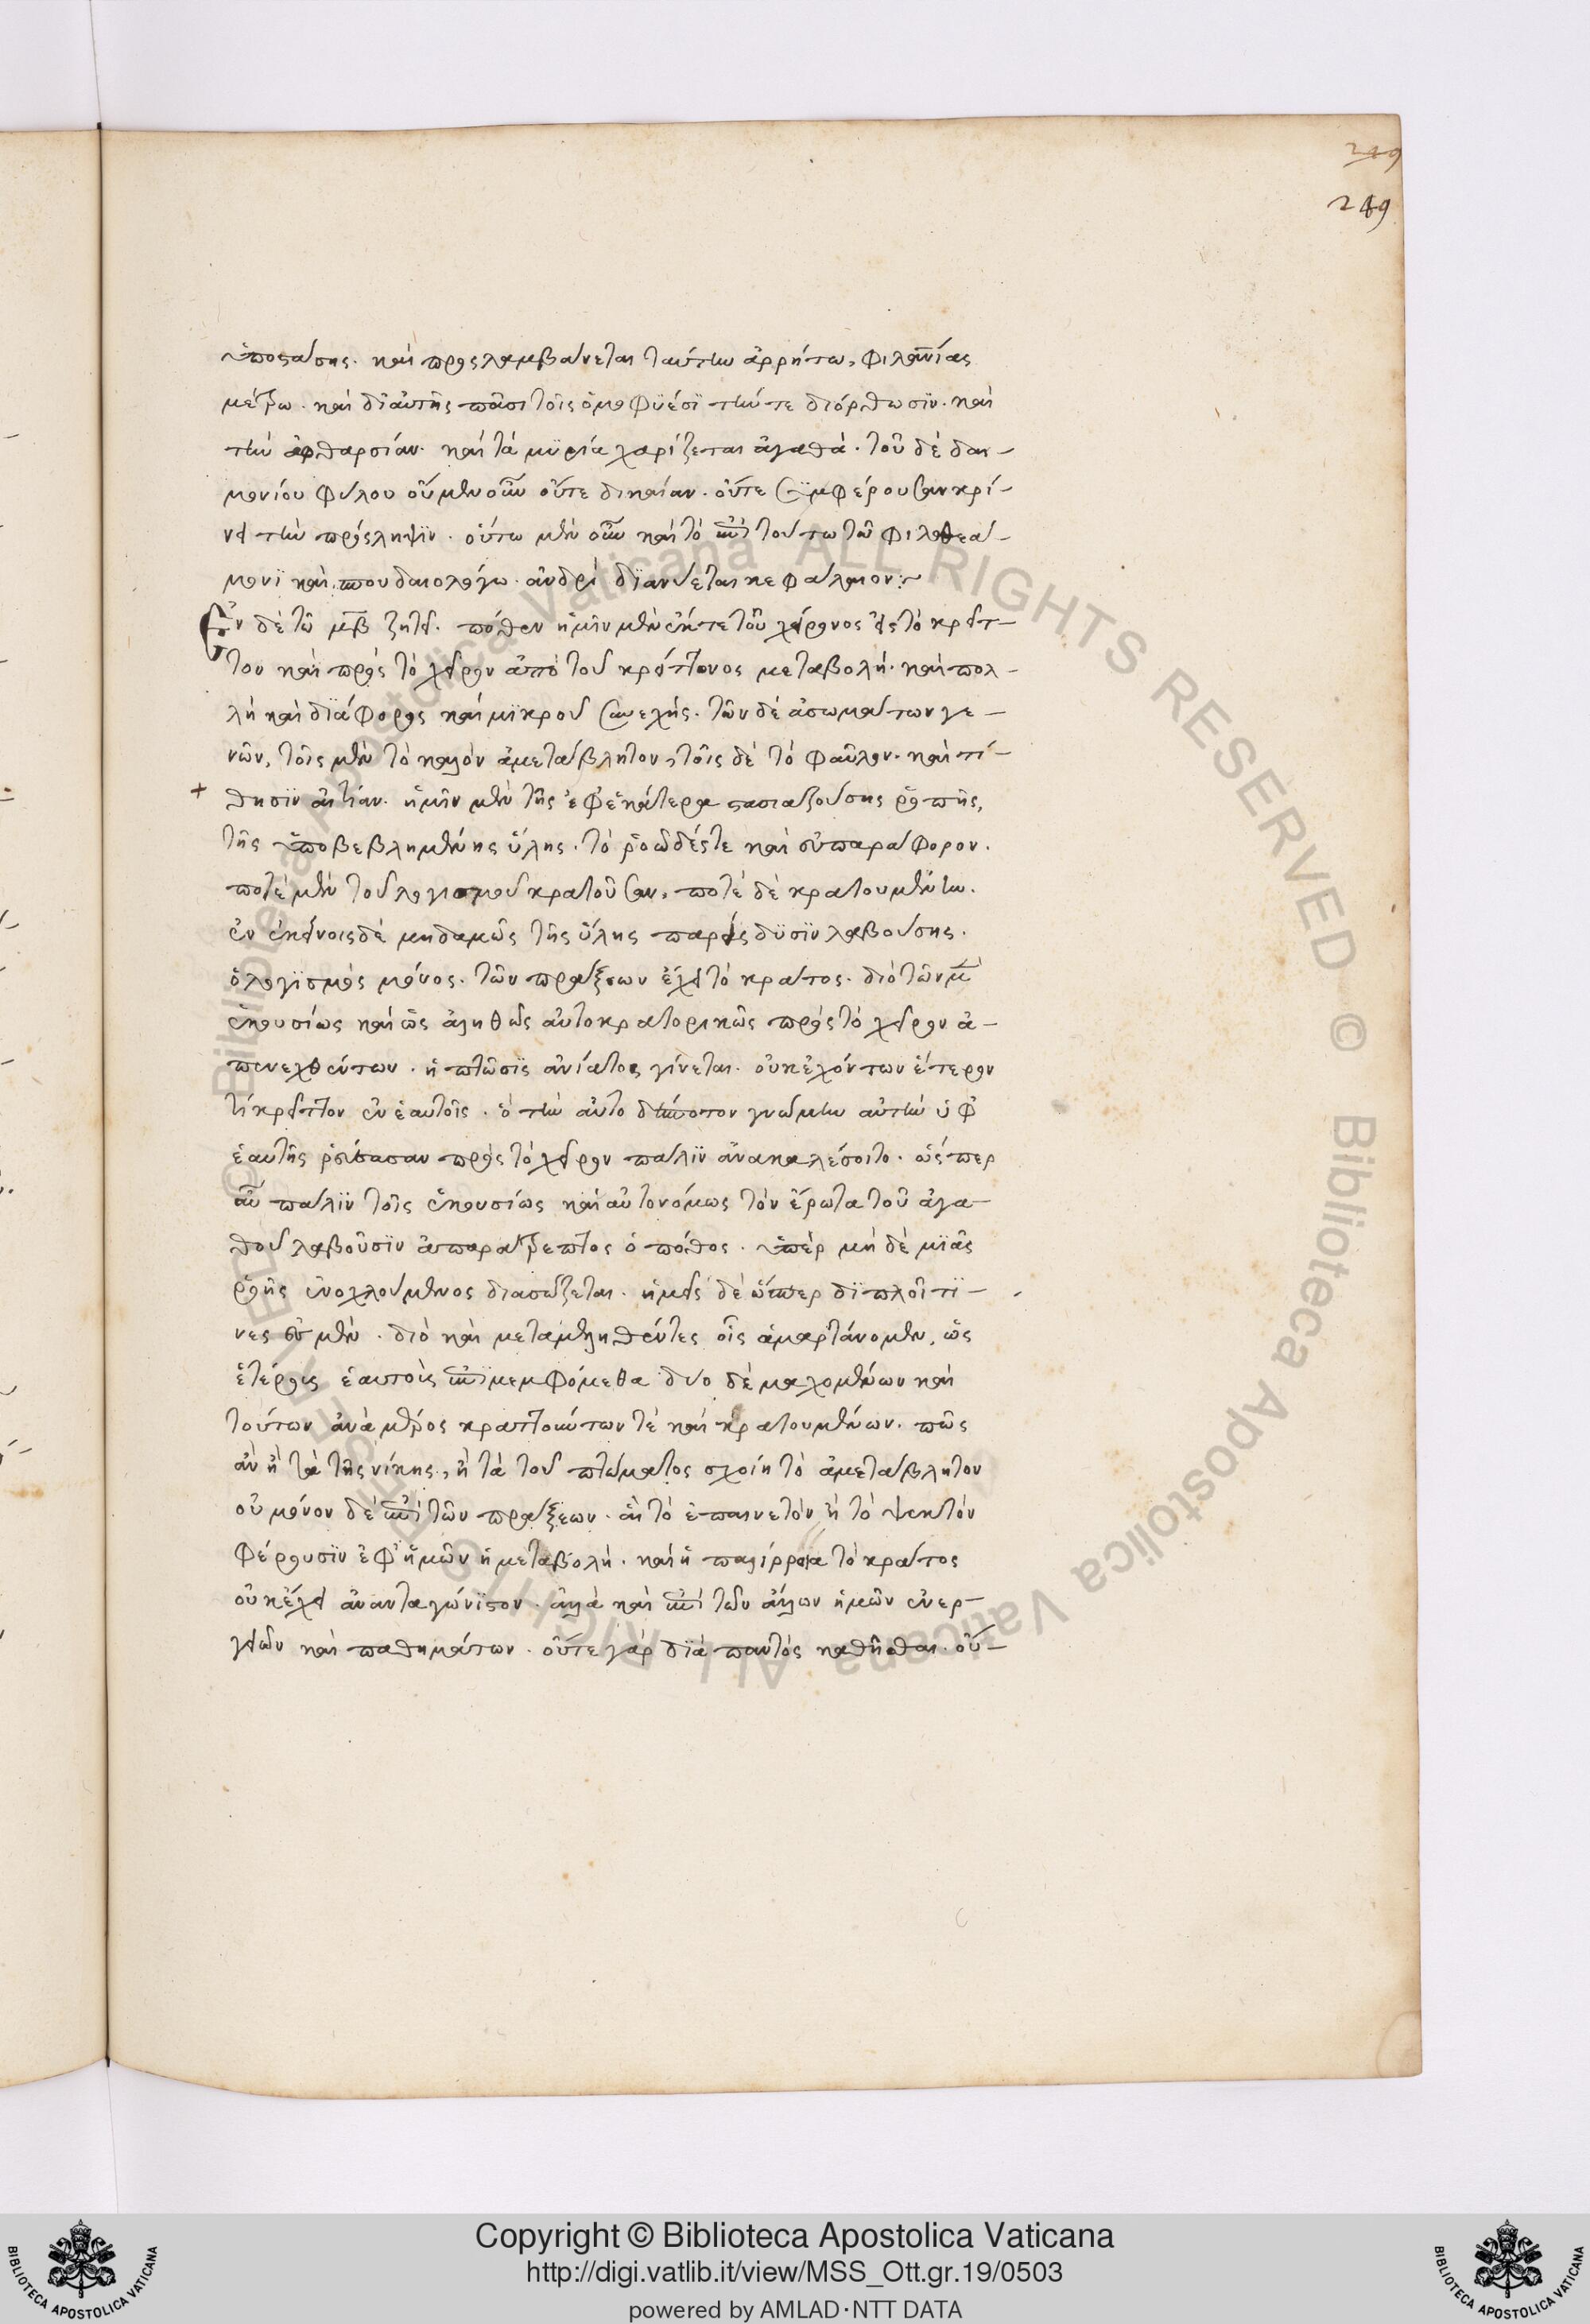 249
249
ὑποστάσης. καὶ προςλαμβάνεται ταύτην ἀρρήτω, φιλανίας
μέτρω. καὶ δι αὐτῆς πᾶσι τοῖς ὁμοφϋέσϊ τήν τε διόρθωσϊν. καὶ
τὴν ἀφθαρσίαν. καὶ τὰ μϋρία χαρίζεται ἀγαθά. τοῦ δὲ δαι-
μονίου φύλου οὐ μὲν οὖν οὔτε δικαίαν. οὔτε συμφέρουσαν κρί-
νει τὴν πρόςληψϊν. οὕτω μὲν οὖν καὶ τὸ ἐπὶ τούτω τῶ φιλοθεά-
μονϊ καὶ σπουδαιολόγω. ἀνδρὶ δϊανύεται κεφάλαιον:~
Ἐν δὲ τῶ μβ ζητεῖ. πόθεν ἡμῖν μὲν ἐκ τε τοῦ χείρονος εἰς τὸ κρεῖτ-
τον καὶ πρὸς τὸ χεῖρον ἀπὸ τοῦ κρείττονος μεταβολή. καὶ πολ-
λὴ καὶ δϊάφορος καὶ μϊκροῦ συνεχής. τῶν δὲ ἀσωμάτων γε-
νῶν, τοῖς μὲν τὸ καλὸν ἀμετάβλητον, τοῖς δὲ τὸ φαῦλον. καὶ τί-
θησϊν αἰτίαν. ἡμῖν μὲν τῆς ἐφ ἑκάτερα στασιαζούσης ῥοπῆς,
τῆς ὑποβεβλημένης ὕλης. τὸ ῥοῶδές τε καὶ εὐπαράφορον.
ποτὲ μὲν τοῦ λογισμοῦ κρατοῦσαν, ποτὲ δὲ κρατουμένην.
ἐν ἐκείνοις δὲ μηδαμῶς τῆς ὕλης παρείςδϋσϊν λαβούσης.
ὁ λογϊσμὸς μόνος. τῶν πράξεων ἔχει τὸ κράτος. διὸ τῶν μὲν
ἑκουσίως καὶ ὡς ἀληθῶς αὐτοκρατορικῶς πρὸς τὸ χεῖρον ἀ-
πενεχθέντων. ἡ πτῶσϊς ἀνίατος γίνεται. οὐκ ἐχόντων ἕτερον
τί κρεῖττον ἐν ἑαυτοῖς. ὃ τὴν αὐτο γνώμην αὐτὴν ὑφ
ἑαυτῆς πρὸς τὸ χεῖρον πάλϊν ἀνακαλέσοιτο. ὥςπερ
αὖ πάλϊν τοῖς ἑκουσίως καὶ αὐτονόμως τὸν ἔρωτα τοῦ ἀγα-
θοῦ λαβοῦσϊν ἀπαράτρεπτος ὁ πόθος. ὑπὲρ μὴ δὲ μϊᾶς
ἐνοχλούμενος διασώζεται. ἡμεῖς δὲ ὥσπερ δϊπλοῖ τϊ-
νες ἐσμέν. διὸ καὶ μεταμεληθέντες οἷς ἁμαρτάνομεν, ὡς
ἑτέροις ἑαυτοῖς ἐπϊμεμφόμεθα δύο δὲ μαχομένων καὶ
τούτων ἀνὰ μέρος κραττούντων τὲ καὶ κρατουμένων. πῶς
ἂν ἢ τὰ τῆς νίκης, ἢ τὰ τοῦ πτώματος σχοίη τὸ ἀμετάβλητον
οὐ μόνον δὲ ἐπὶ τῶν πράξεων. αἳ τὸ ἐπαινετὸν ἢ τὸ ψεκτὸν
φέρουσϊν ἐφ ἡμῶν ἡ μεταβολή. καὶ ἡ παλίρροια τὸ κράτος
οὐκ ἔχει ἀνανταγώνϊστον. ἀλλὰ καὶ ἐπὶ τῶν ἄλλων ἡμῶν ἐνερ-
γειῶν καὶ παθημάτων. οὔτε γὰρ δϊὰ παντὸς καθῆσθαι. οὔ-
Copyright © Biblioteca Apostolica Vaticana
http://digi.vatlib.it/view/MSS_Ott.gr.19/0503
powered by AMLAD·NTT DATA